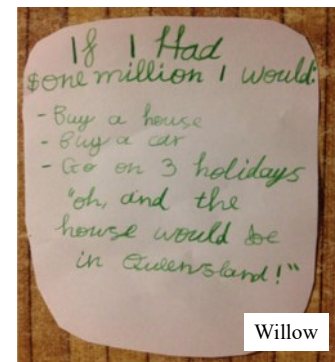 If I Had
$one million I would:
- Buy a house
- Buy a car
- Go on 3 holidays
"oh, and the
house would be
in Queensland!"
Willow